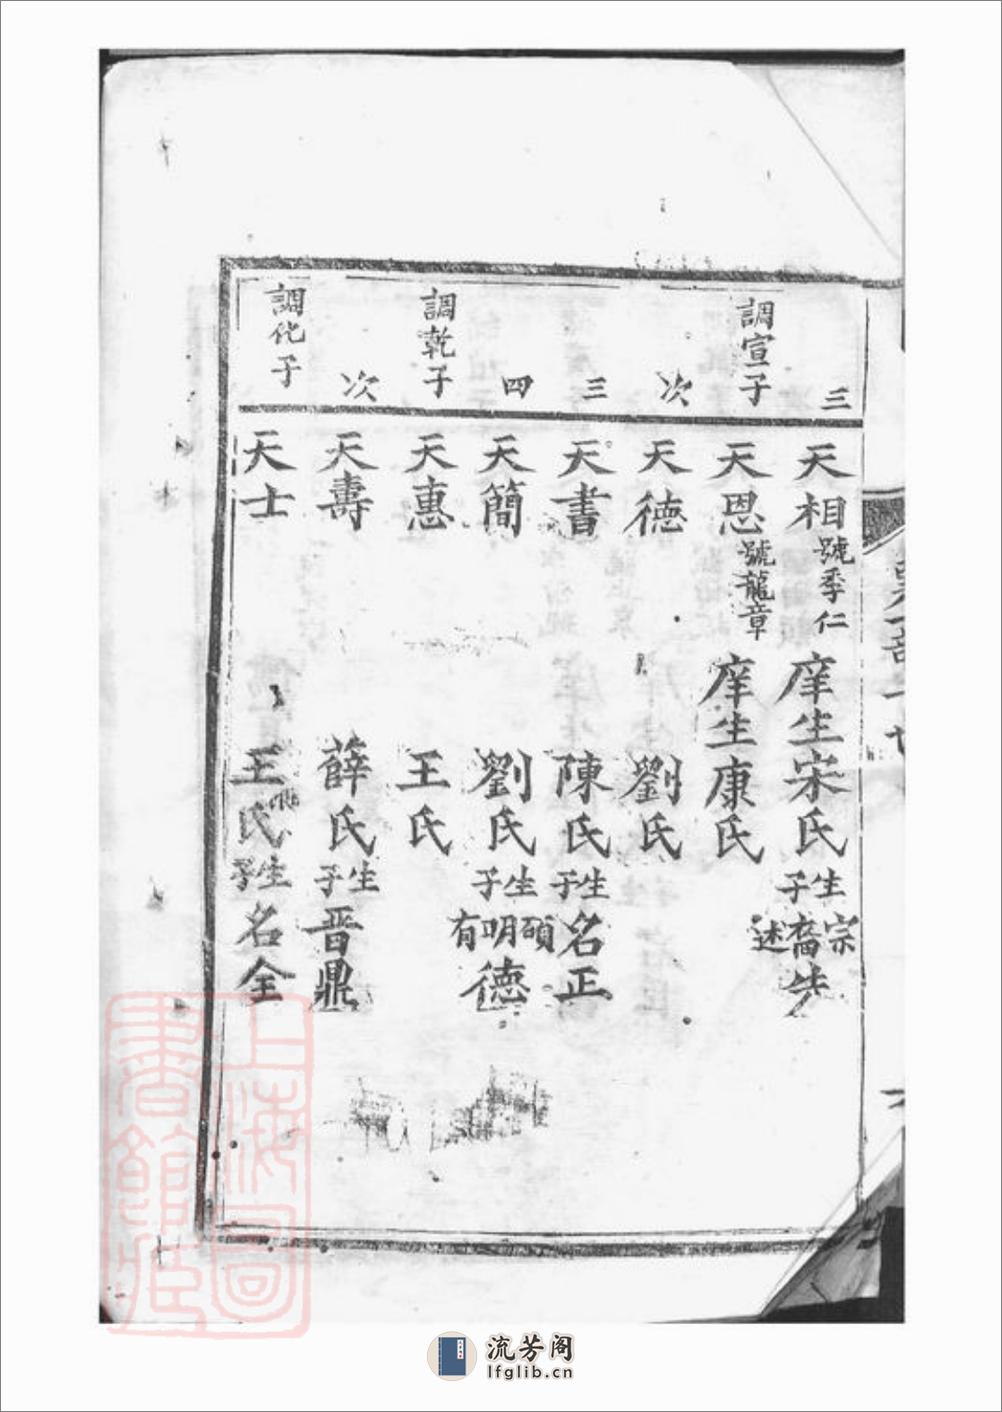 三 天相 號季仁 庠生宋氏 生子 宗裔步述
調宣子 天恩 號龍章 庠生康氏
次 天德 劉氏
三 天書 陳氏 生子 名正
四 天簡 劉氏 生子 碩明德有
調乾子 天惠 王氏
次 天壽 薛氏 生子 晋鼎
調化子 天士 王氏 生子 名全
上海圖書館藏
流芳阁
lfglib.cn